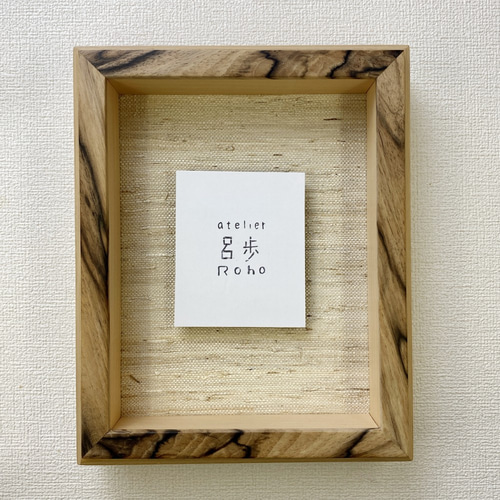 atelier
呂歩
Roho